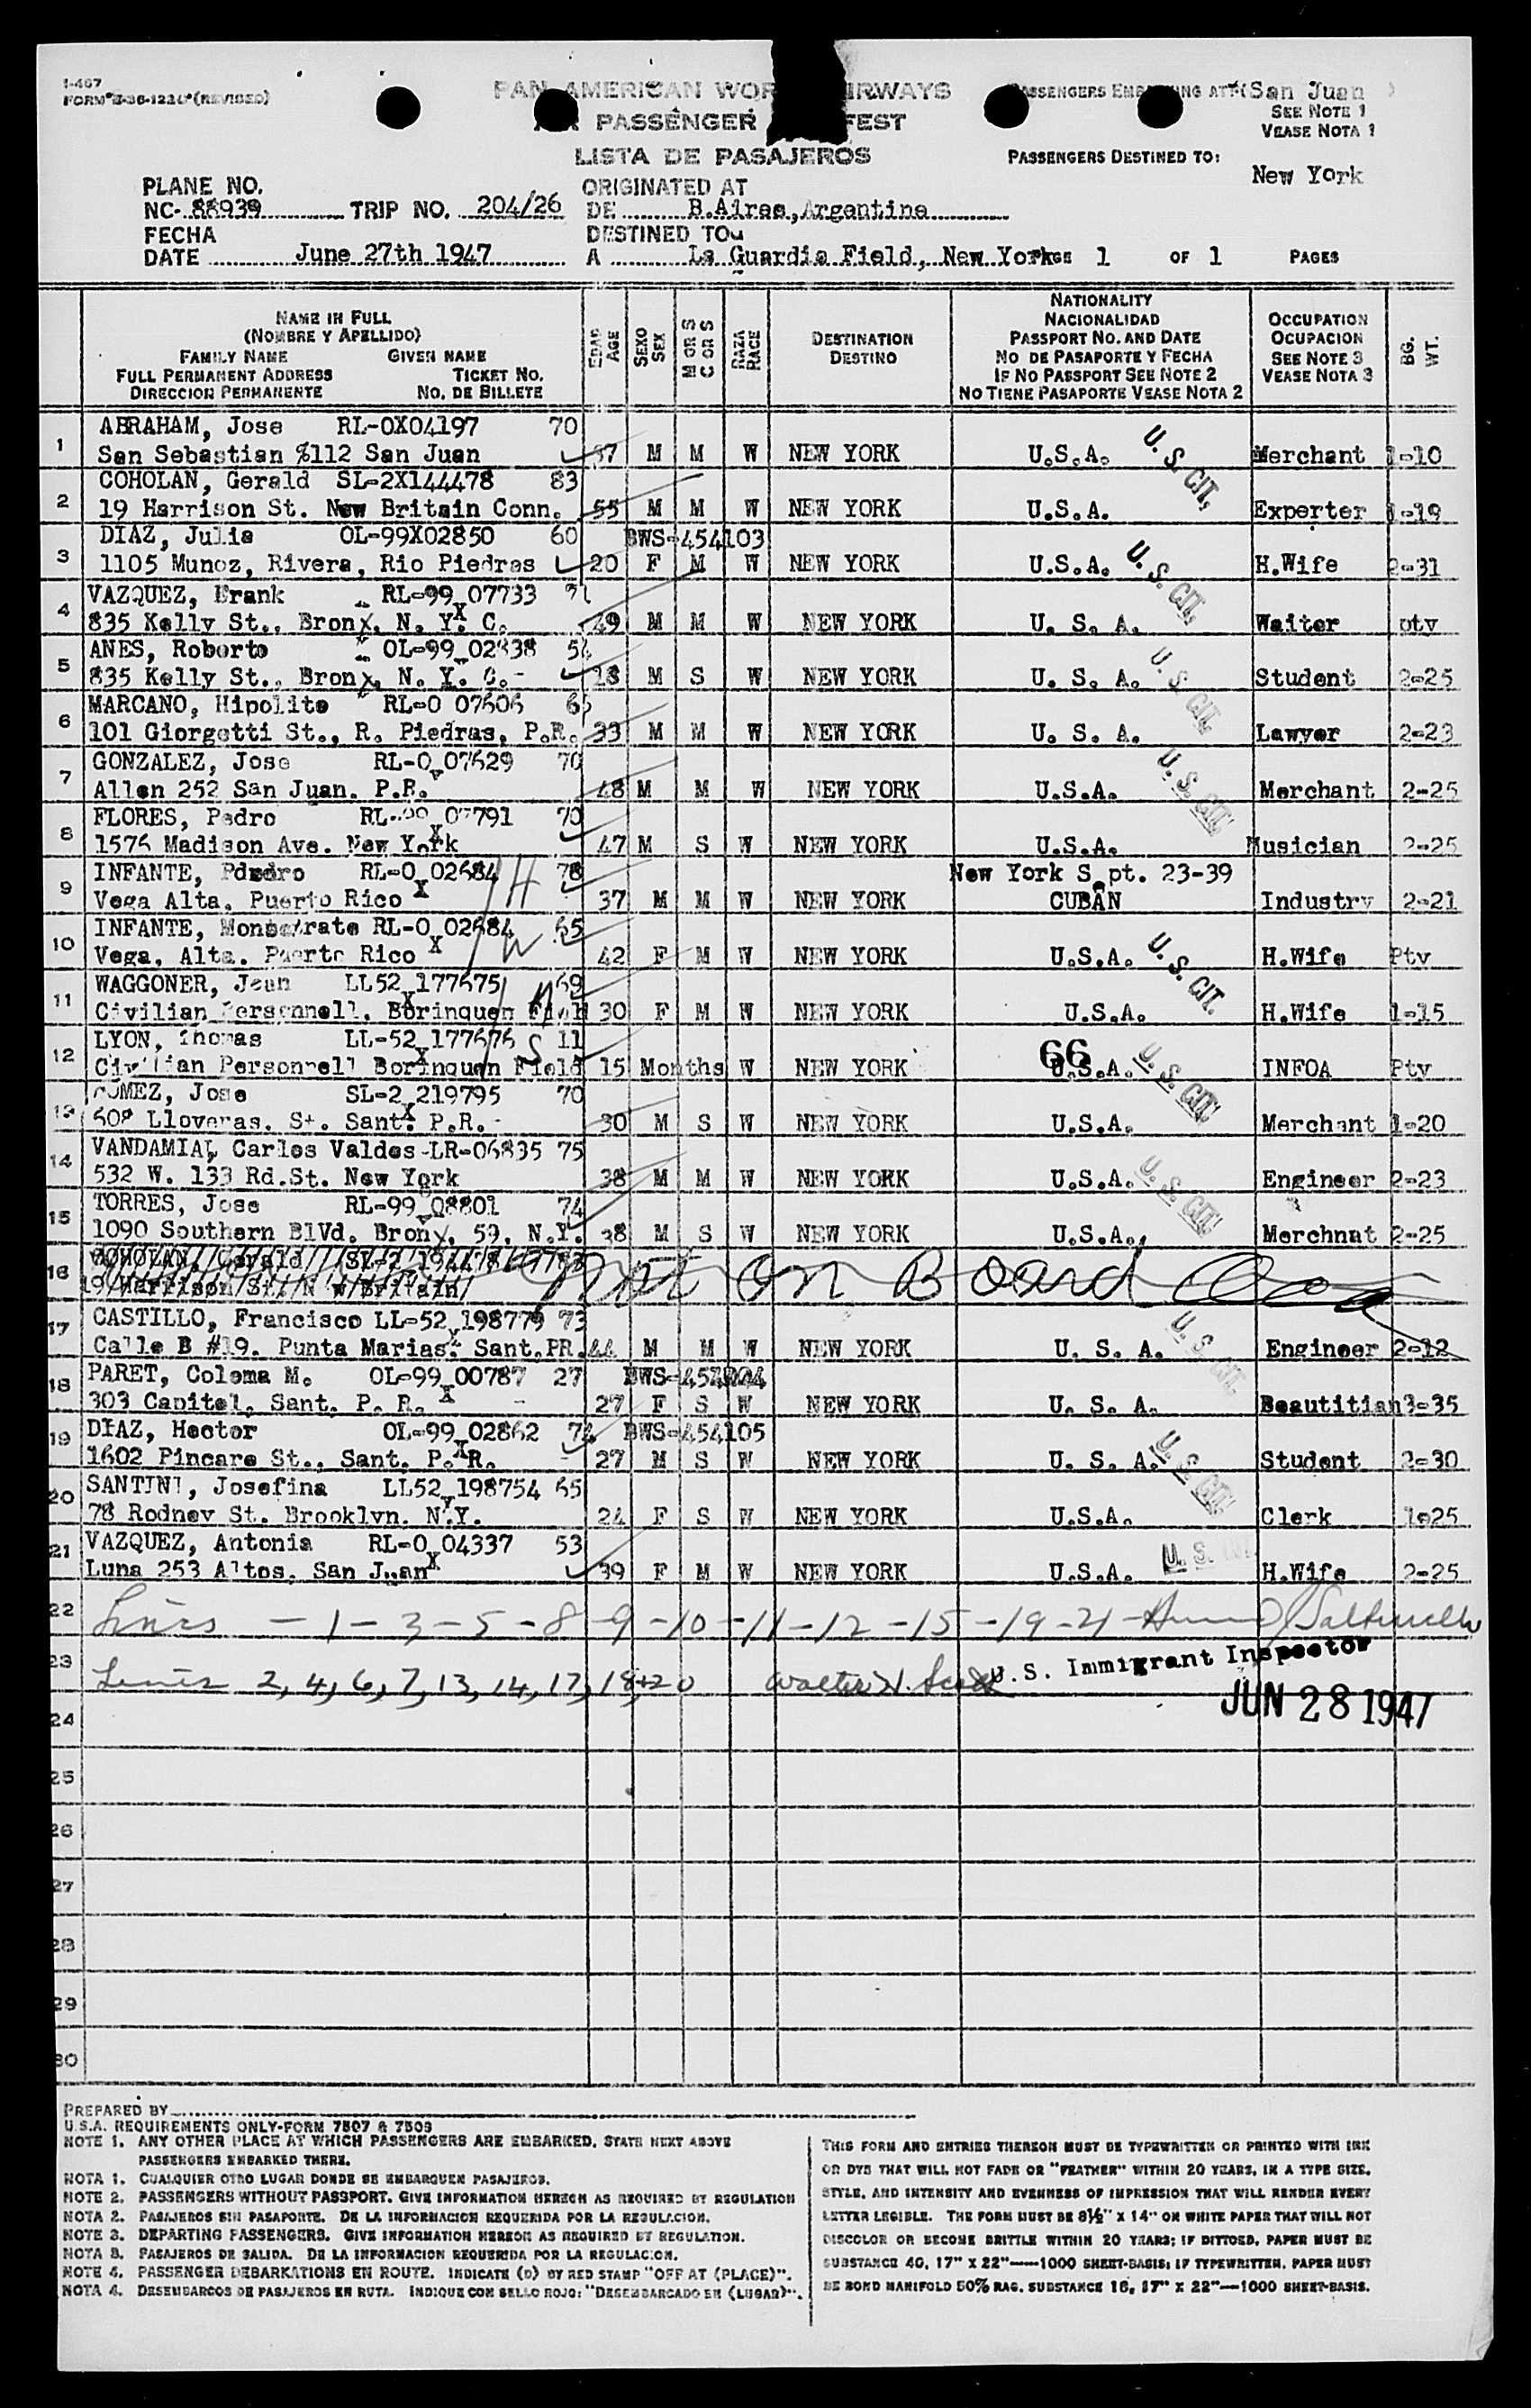 I-467
PAN AMERICAN WORLD AIRWAYS
PASSENGERS EMBARKING AT: (San Juan )
FORM (REVISED)
SEE NOTE 1
PASSENGER
VEASE NOTA 1
LISTA DE PASAJEROS
PASSENGERS DESTINED TO:
New York
PLANE NO. ORIGINATED AT
NC- 88939 TRIP NO. 204/26 DE B.Aires, Argentina
FECHA DESTINED TO
DATE June 27th 1947 A La Guardia Field, New York PAGE 1 OF 1 PAGES
NAME IN FULL
(NOMBRE Y APELLIDO)
FAMILY NAME GIVEN NAME
FULL PERMANENT ADDRESS TICKET NO.
DIRECCION PERMANENTE NO. DE BILLETE
EDAD AGE
SEXO SEX
M OR S C OR S
RAZA RACE
DESTINATION
DESTINO
NATIONALITY
NACIONALIDAD
PASSPORT NO. AND DATE
NO DE PASAPORTE Y FECHA
IF NO PASSPORT SEE NOTE 2
NO TIENE PASAPORTE VEASE NOTA 2
OCCUPATION
OCUPACION
SEE NOTE 3
VEASE NOTA 3
BG. WT.
ABRAHAM, Jose RL-0X04197 70
1 San Sebastian %112 San Juan 37 M M W NEW YORK U.S.A. U.S. CIT. Merchant 1-10
COHOLAN, Gerald SL-2X144478 83
2 19 Harrison St. New Britain Conn. 55 M M W NEW YORK U.S.A. Exporter 1-19
DIAZ, Julia OL-99X02850 60 BWS-454103
3 1105 Munoz, Rivera, Rio Piedras 20 F M W NEW YORK U.S.A. U.S. CIT. H.Wife 2-31
VAZQUEZ, Frank RL-99X07733
4 835 Kelly St., Bronx, N. Y. C. 49 M M W NEW YORK U. S. A. Waiter pty
ANES, Roberto OL-99 02838
5 835 Kelly St., Bronx, N. Y. C. 18 M S W NEW YORK U. S. A. U.S. CIT. Student 2-25
MARCANO, Hipolito RL-0 07606
6 101 Giorgetti St., R. Piedras, P.R. 33 M M W NEW YORK U. S. A. Lawyer 2-23
GONZALEZ, Jose RL-0 07629 70
7 Allen 252 San Juan. P.R. 48 M M W NEW YORK U.S.A. U.S. CIT. Merchant 2-25
FLORES, Pedro 70
8 1576 Madison Ave. New York 47 M S W NEW YORK U.S.A. Musician 2-25
INFANTE, Pdedro RL-0X02684 78 New York Sept. 23-39
9 Vega Alta, Puerto Rico H 37 M M W NEW YORK CUBAN Industry 2-21
INFANTE, RL-0X02684 65
10 Vega, Alta. Puerto Rico W 42 F M W NEW YORK U.S.A. U.S. CIT. H.Wife Pty
WAGGONER, Jean LL52X177675 69
11 Civilian Personnell, Borinquen 30 F M W NEW YORK U.S.A. H.Wife 1-15
LYON, Thomas LL-52X177676 11 66
12 Civilian Personnell Borinquen Field S 15 Months W NEW YORK U.S.A. U.S. CIT. INFOA Pty
GOMEZ, Jose SL-2X219795 70
13 608 Lloveras. St. Sant. P.R. 30 M S W NEW YORK U.S.A. Merchant 1-20
VANDAMIA, Carlos Valdes-LR-06835 75
14 532 W. 133 Rd.St. New York 38 M M W NEW YORK U.S.A. U.S. CIT. Engineer 2-23
TORRES, Jose RL-99 08801 74
15 1090 Southern BlVd. Bronx, 59, N.Y. 38 M S W NEW YORK U.S.A. Merchnat 2-25
COHOLAN, Gerald
16 19 Harrison Not on Board
CASTILLO, Francisco LL-52X198779 73
17 Calle B #19. Punta Marias. Sant.PR. 44 M M W NEW YORK U. S. A. U.S. CIT. Engineer 2-12
PARET, Coloma M. OL-99X00787 27
18 303 Capitol, Sant. P. R. 27 F S W NEW YORK U. S. A. Beautitian 3-35
DIAZ, Hector OL-99X02862 74 BWS-454105
19 1602 Pincare St., Sant. P. R. 27 M S W NEW YORK U. S. A. U.S. CIT. Student 2-30
SANTINI, Josefina LL52 198754 65
20 78 Rodney St. Brooklyn. N.Y. 24 F S W NEW YORK U.S.A. Clerk 1-25
VAZQUEZ, Antonia RL-0X04337 53
21 Luna 253 Altos. San Juan 39 F M W NEW YORK U.S.A. U.S. H.Wife 2-25
22 Lines - 1 - 3 - 5 - 8 - 9 - 10 - 11 - 12 - 15 - 19 - 21
U.S. Immigrant Inspector
23 Lines 2, 4, 6, 7, 13, 14, 17, 18 + 20 Walter
JUN 28 1947
24
25
26
27
28
29
30
PREPARED BY
U.S.A. REQUIREMENTS ONLY-FORM 7507 & 7509
NOTE 1. ANY OTHER PLACE AT WHICH PASSENGERS ARE EMBARKED. STATE NEXT ABOVE
PASSENGERS EMBARKED THERE.
NOTA 1. CUALQUIER OTRO LUGAR DONDE SE EMBARQUEN PASAJEROS.
NOTE 2. PASSENGERS WITHOUT PASSPORT. GIVE INFORMATION HEREON AS REQUIRED BY REGULATION
NOTA 2. PASAJEROS SIN PASAPORTE. DE LA INFORMACION REQUERIDA POR LA REGULACION.
NOTE 3. DEPARTING PASSENGERS. GIVE INFORMATION HEREON AS REQUIRED BY REGULATION.
NOTA 3. PASAJEROS DE SALIDA. DE LA INFORMACION REQUERIDA POR LA REGULACION.
NOTE 4. PASSENGER DEBARKATIONS EN ROUTE. INDICATE (D) BY RED STAMP "OFF AT (PLACE)".
NOTA 4. DESEMBARCOS DE PASAJEROS EN RUTA. INDIQUE CON SELLO ROJO: "DESEMBARCADO EN (LUGAR)".
THIS FORM AND ENTRIES THEREON MUST BE TYPEWRITTEN OR PRINTED WITH INK
OR DYE THAT WILL NOT FADE OR "FEATHER" WITHIN 20 YEARS, IN A TYPE SIZE,
STYLE, AND INTENSITY AND EVENNESS OF IMPRESSION THAT WILL RENDER EVERY
LETTER LEGIBLE. THE FORM MUST BE 8½" X 14" ON WHITE PAPER THAT WILL NOT
DISCOLOR OR BECOME BRITTLE WITHIN 20 YEARS; IF DITTOED, PAPER MUST BE
SUBSTANCE 40, 17" X 22"——1000 SHEET-BASIS; IF TYPEWRITTEN, PAPER MUST
BE BOND MANIFOLD 50% RAG, SUBSTANCE 16, 17" X 22"—1000 SHEET-BASIS.